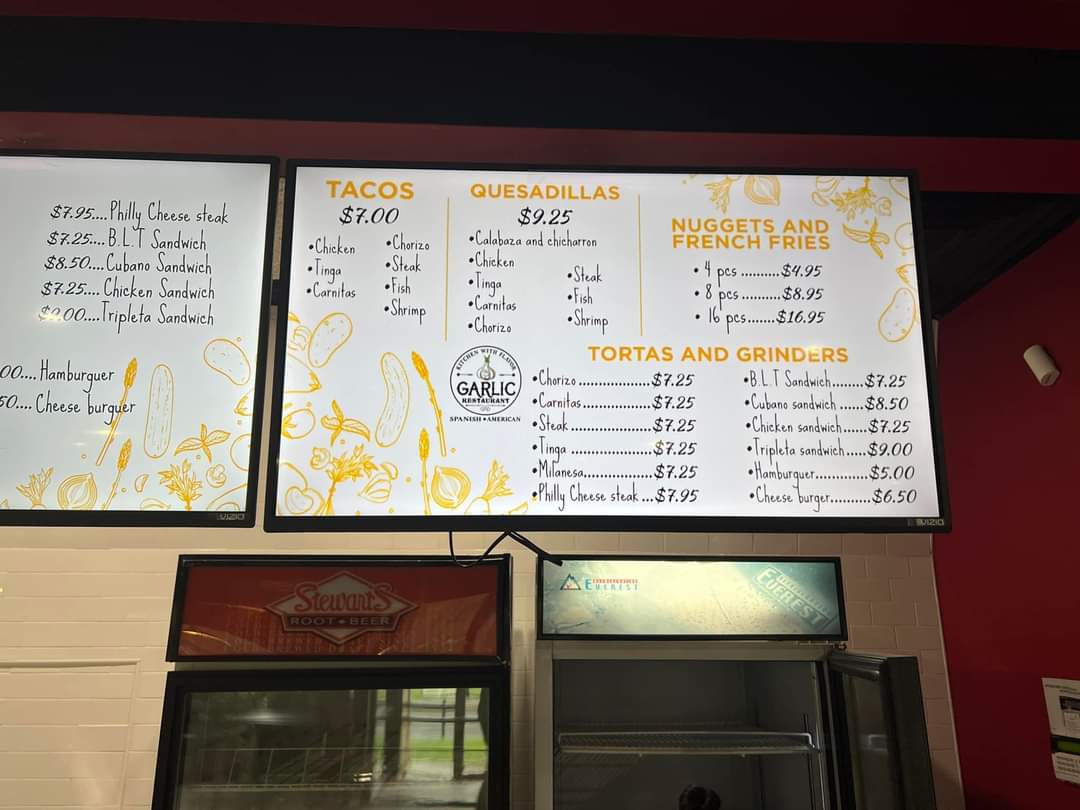 $7.95....Philly Cheese steak
$7.25....B.L.T Sandwich
$8.50....Cubano Sandwich
$7.25....Chicken Sandwich
$9.00....Tripleta Sandwich
00....Hamburguer
50....Cheese burguer
VIZIO
TACOS
$7.00
•Chicken
•Tinga
•Carnitas
•Chorizo
•Steak
•Fish
•Shrimp
QUESADILLAS
$9.25
•Calabaza and chicharron
•Chicken
•Tinga
•Carnitas
•Chorizo
•Steak
•Fish
•Shrimp
NUGGETS AND
FRENCH FRIES
• 4 pcs..........$4.95
• 8 pcs..........$8.95
• 16 pcs.......$16.95
KITCHEN WITH FLAVOR
GARLIC
RESTAURANT
SPANISH • AMERICAN
TORTAS AND GRINDERS
•Chorizo....................$7.25
•Carnitas...................$7.25
•Steak.......................$7.25
•Tinga.......................$7.25
•Milanesa..................$7.25
•Philly Cheese steak...$7.95
•B.L.T Sandwich.......$7.25
•Cubano sandwich......$8.50
•Chicken sandwich.....$7.25
•Tripleta sandwich.....$9.00
•Hamburguer.............$5.00
•Cheese burger..........$6.50
VIZIO
Stewart's
ROOT • BEER
EVEREST
EVEREST